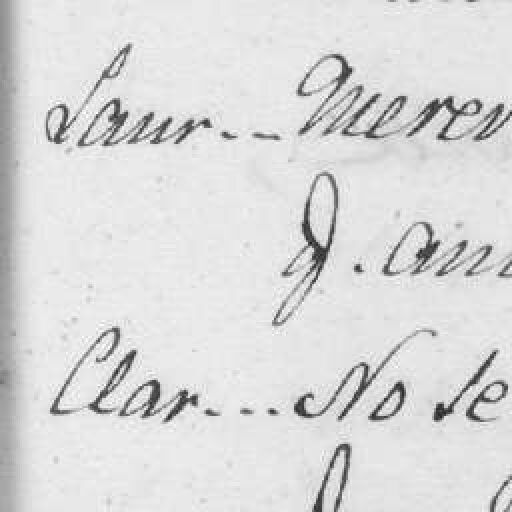 Laur--- Merer
J. am
Clar--- No Se